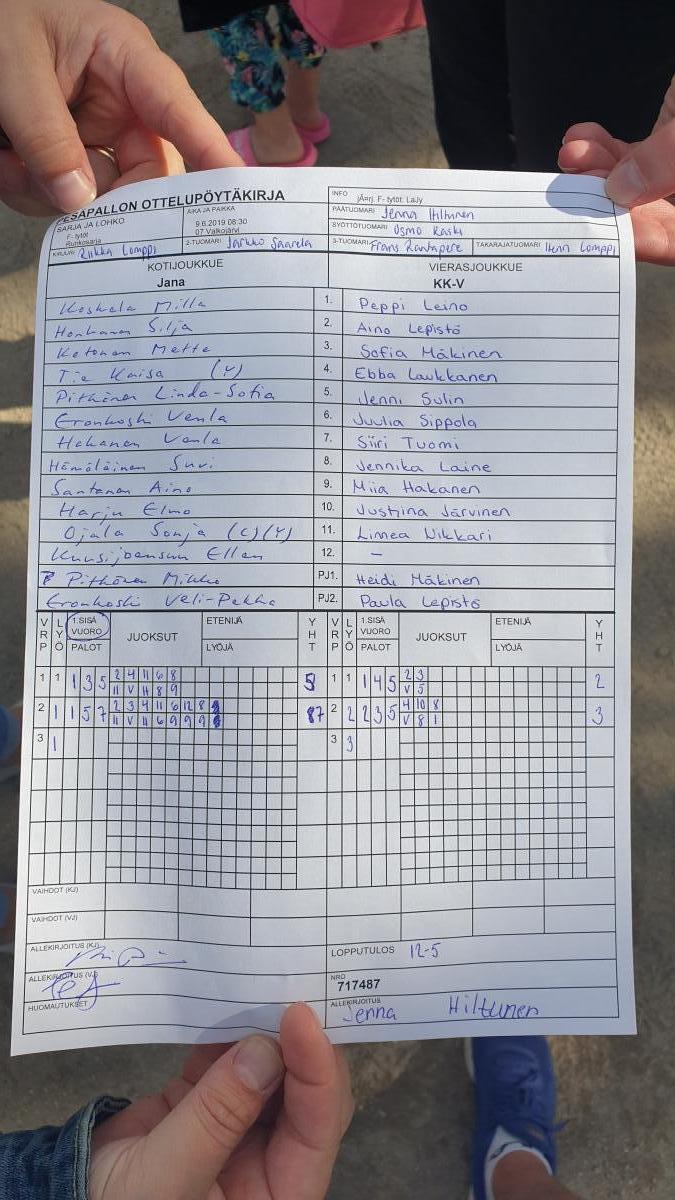 PESÄPALLON OTTELUPÖYTÄKIRJA
SARJA JA LOHKO
F- tytöt
Runkosarja
AIKA JA PAIKKA
9.6.2019 08:30
07 Valkojärvi
INFO jÄ¤rj. F- tytöt: LaJy
PÄÄTUOMARI Jenna Hiltunen
SYÖTTÖTUOMARI Osmo Raski
KIRJURI Riikka Lomppi
2-TUOMARI Jarkko Saarela
3-TUOMARI Frans Rantapere
TAKARAJATUOMARI Henri Lomppi
KOTIJOUKKUE
Jana
VIERASJOUKKUE
KK-V
Koskela Milla 1. Peppi Leino
Honkanen Silja 2. Aino Lepistö
Ketonen Mette 3. Sofia Mäkinen
Tie Kaisa (Y) 4. Ebba Laukkanen
Pitkänen Linda-Sofia 5. Jenni Sulin
Eronkoski Venla 6. Juulia Sippola
Hakanen Venla 7. Siiri Tuomi
Hämäläinen Suvi 8. Jennika Laine
Santanen Aino 9. Miia Hakanen
Harju Elmo 10. Justiina Järvinen
Ojala Sonja (C)(Y) 11. Linnea Vikkari
Kuusijoensuu Ellen 12. –
Pitkänen Mikko PJ1. Heidi Mäkinen
Eronkoski Veli-Pekka PJ2. Paula Lepistö
VRP LYÖ 1.SISÄ VUORO PALOT JUOKSUT ETENIJÄ LYÖJÄ YHT VRP LYÖ 1.SISÄ VUORO PALOT JUOKSUT ETENIJÄ LYÖJÄ YHT
1 1 1 3 5 2 4 11 6 8 5 1 1 1 4 5 2 3 2
11 V 11 8 9 V 5
2 1 1 5 7 2 3 4 11 6 12 8 7 2 2 2 3 5 4 10 8 3
11 V 11 6 9 9 9 V 8 1
3 1 3 3
VAIHDOT (KJ)
VAIHDOT (VJ)
ALLEKIRJOITUS (KJ)
LOPPUTULOS 12-5
ALLEKIRJOITUS (VJ)
NRO
717487
HUOMAUTUKSET
ALLEKIRJOITUS
Jenna Hiltunen